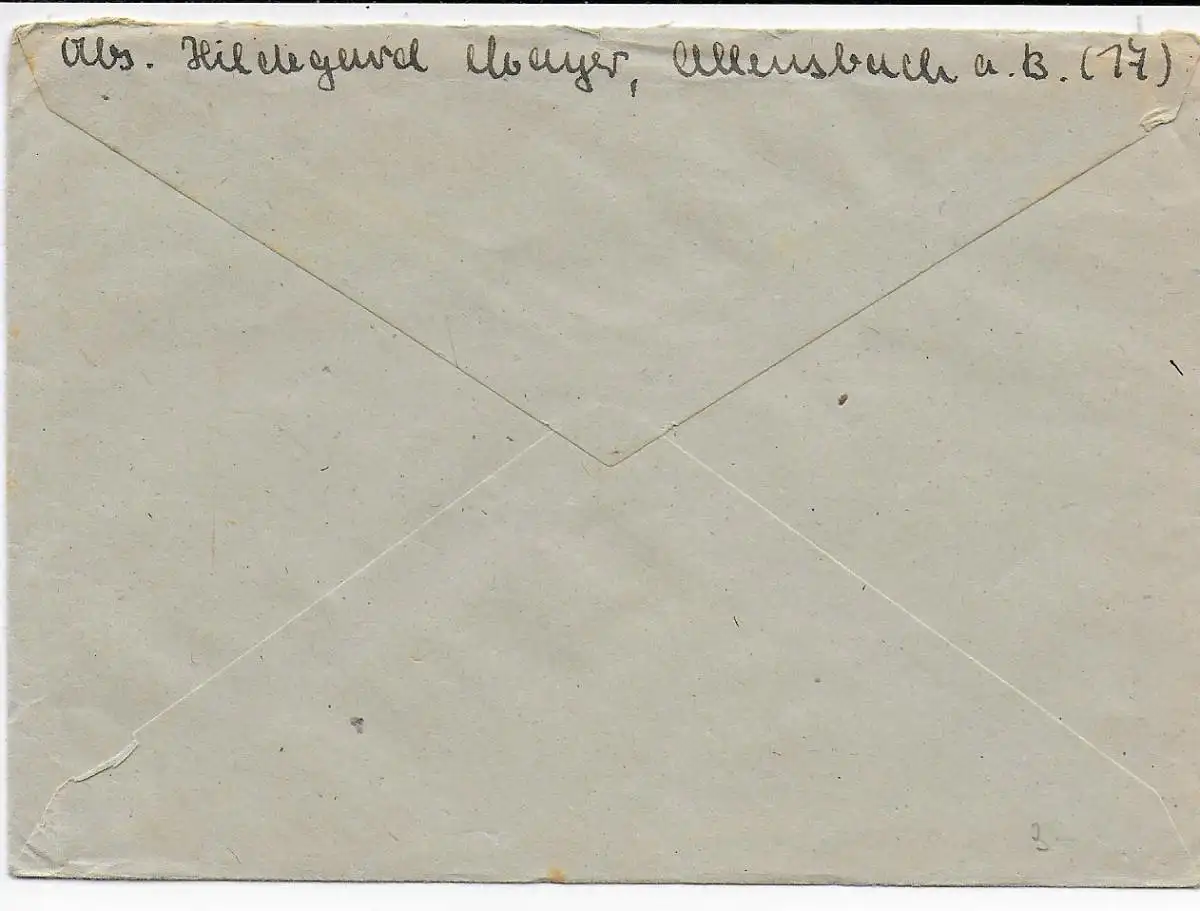 Abs. Hildegard Mayer, Allensbach a. B. (17)
3-